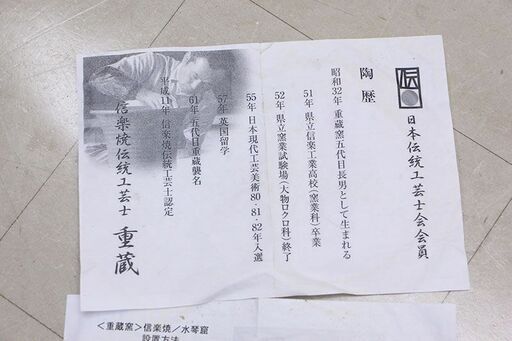 伝
日本伝統工芸士会会員
陶歴
昭和32年 重蔵窯五代目長男として生まれる
51年 県立信楽工業高校(窯業科)卒業
52年 県立窯業試験場(大物ロクロ科)終了
55年 日本現代工芸美術80・81・82年入選
57年 英国留学
61年 五代目重蔵襲名
平成11年 信楽焼伝統工芸士認定
信楽焼伝統工芸士 重蔵
<重蔵窯>信楽焼/水琴窟
設置方法